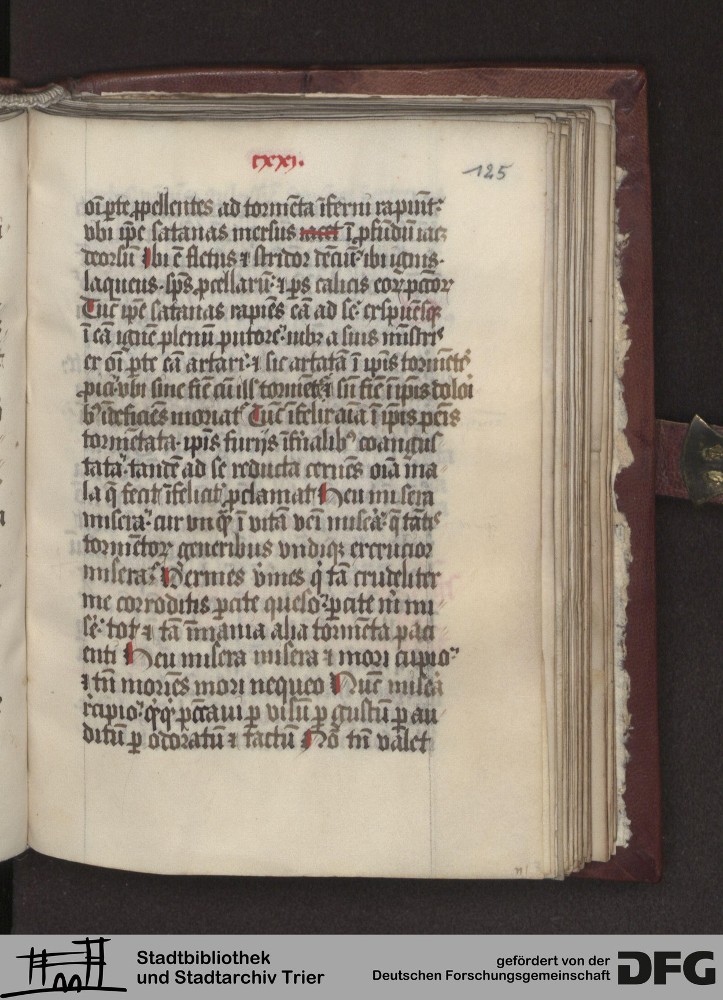 cxxi.
125
oī ꝑte ꝓpellentes ad tormēta īferni rapiūt:
vbi ip̄e satanas mersus iacet ī ꝓfūdū iac;
deorsū Ibi ē fletus ⁊ stridor dētiū: ibi ignis.
laqueus. sp̄s ꝓcellarū: ⁊ ꝑs calicis eoꝝ pctōꝝ
Tūc ip̄e satanas rapiēs eā ad se: exspuēsq;
ī eā ignē plenū putore: iubꝫ a suis mīstri
er oī ꝑte eā artari: ⁊ sic artatā ī ip̄is tormēt
vbi sine fīe cū ill tormēt sū fīe ī ip̄is doloi
b īdeficiēs moriat Tūc īfelix aīa ī ip̄is peīs
tormētata. ip̄is furijs īfr̄nalib coangus
tata: tandē ad se reducta cernēs oīa ma
la q̄ fecit īfelicit ꝓclamat Heu misera
misera: cur vnq̄ ī vitā veī mīseā: q̄ tātis
tormētoꝝ generibus vndiqꝫ excrucior
misera: Vermes v̄mes q̄ tā crudeliter
me corroditis ꝑcite queso: ꝑcite m̄ mi
se: tot ⁊ tā īmania alia tormēta paci
enti Heu misera misera ⁊ mori cupio:
⁊ tn̄ moriēs mori nequeo Nūc miseā
rcipio: q̄q̄ peccaui ꝑ visū ꝑ gustū ꝑ au
ditū ꝑ odoratū ⁊ tactū Nō tn̄ valet
Stadtbibliothek
und Stadtarchiv Trier
gefördert von der
Deutschen Forschungsgemeinschaft
DFG